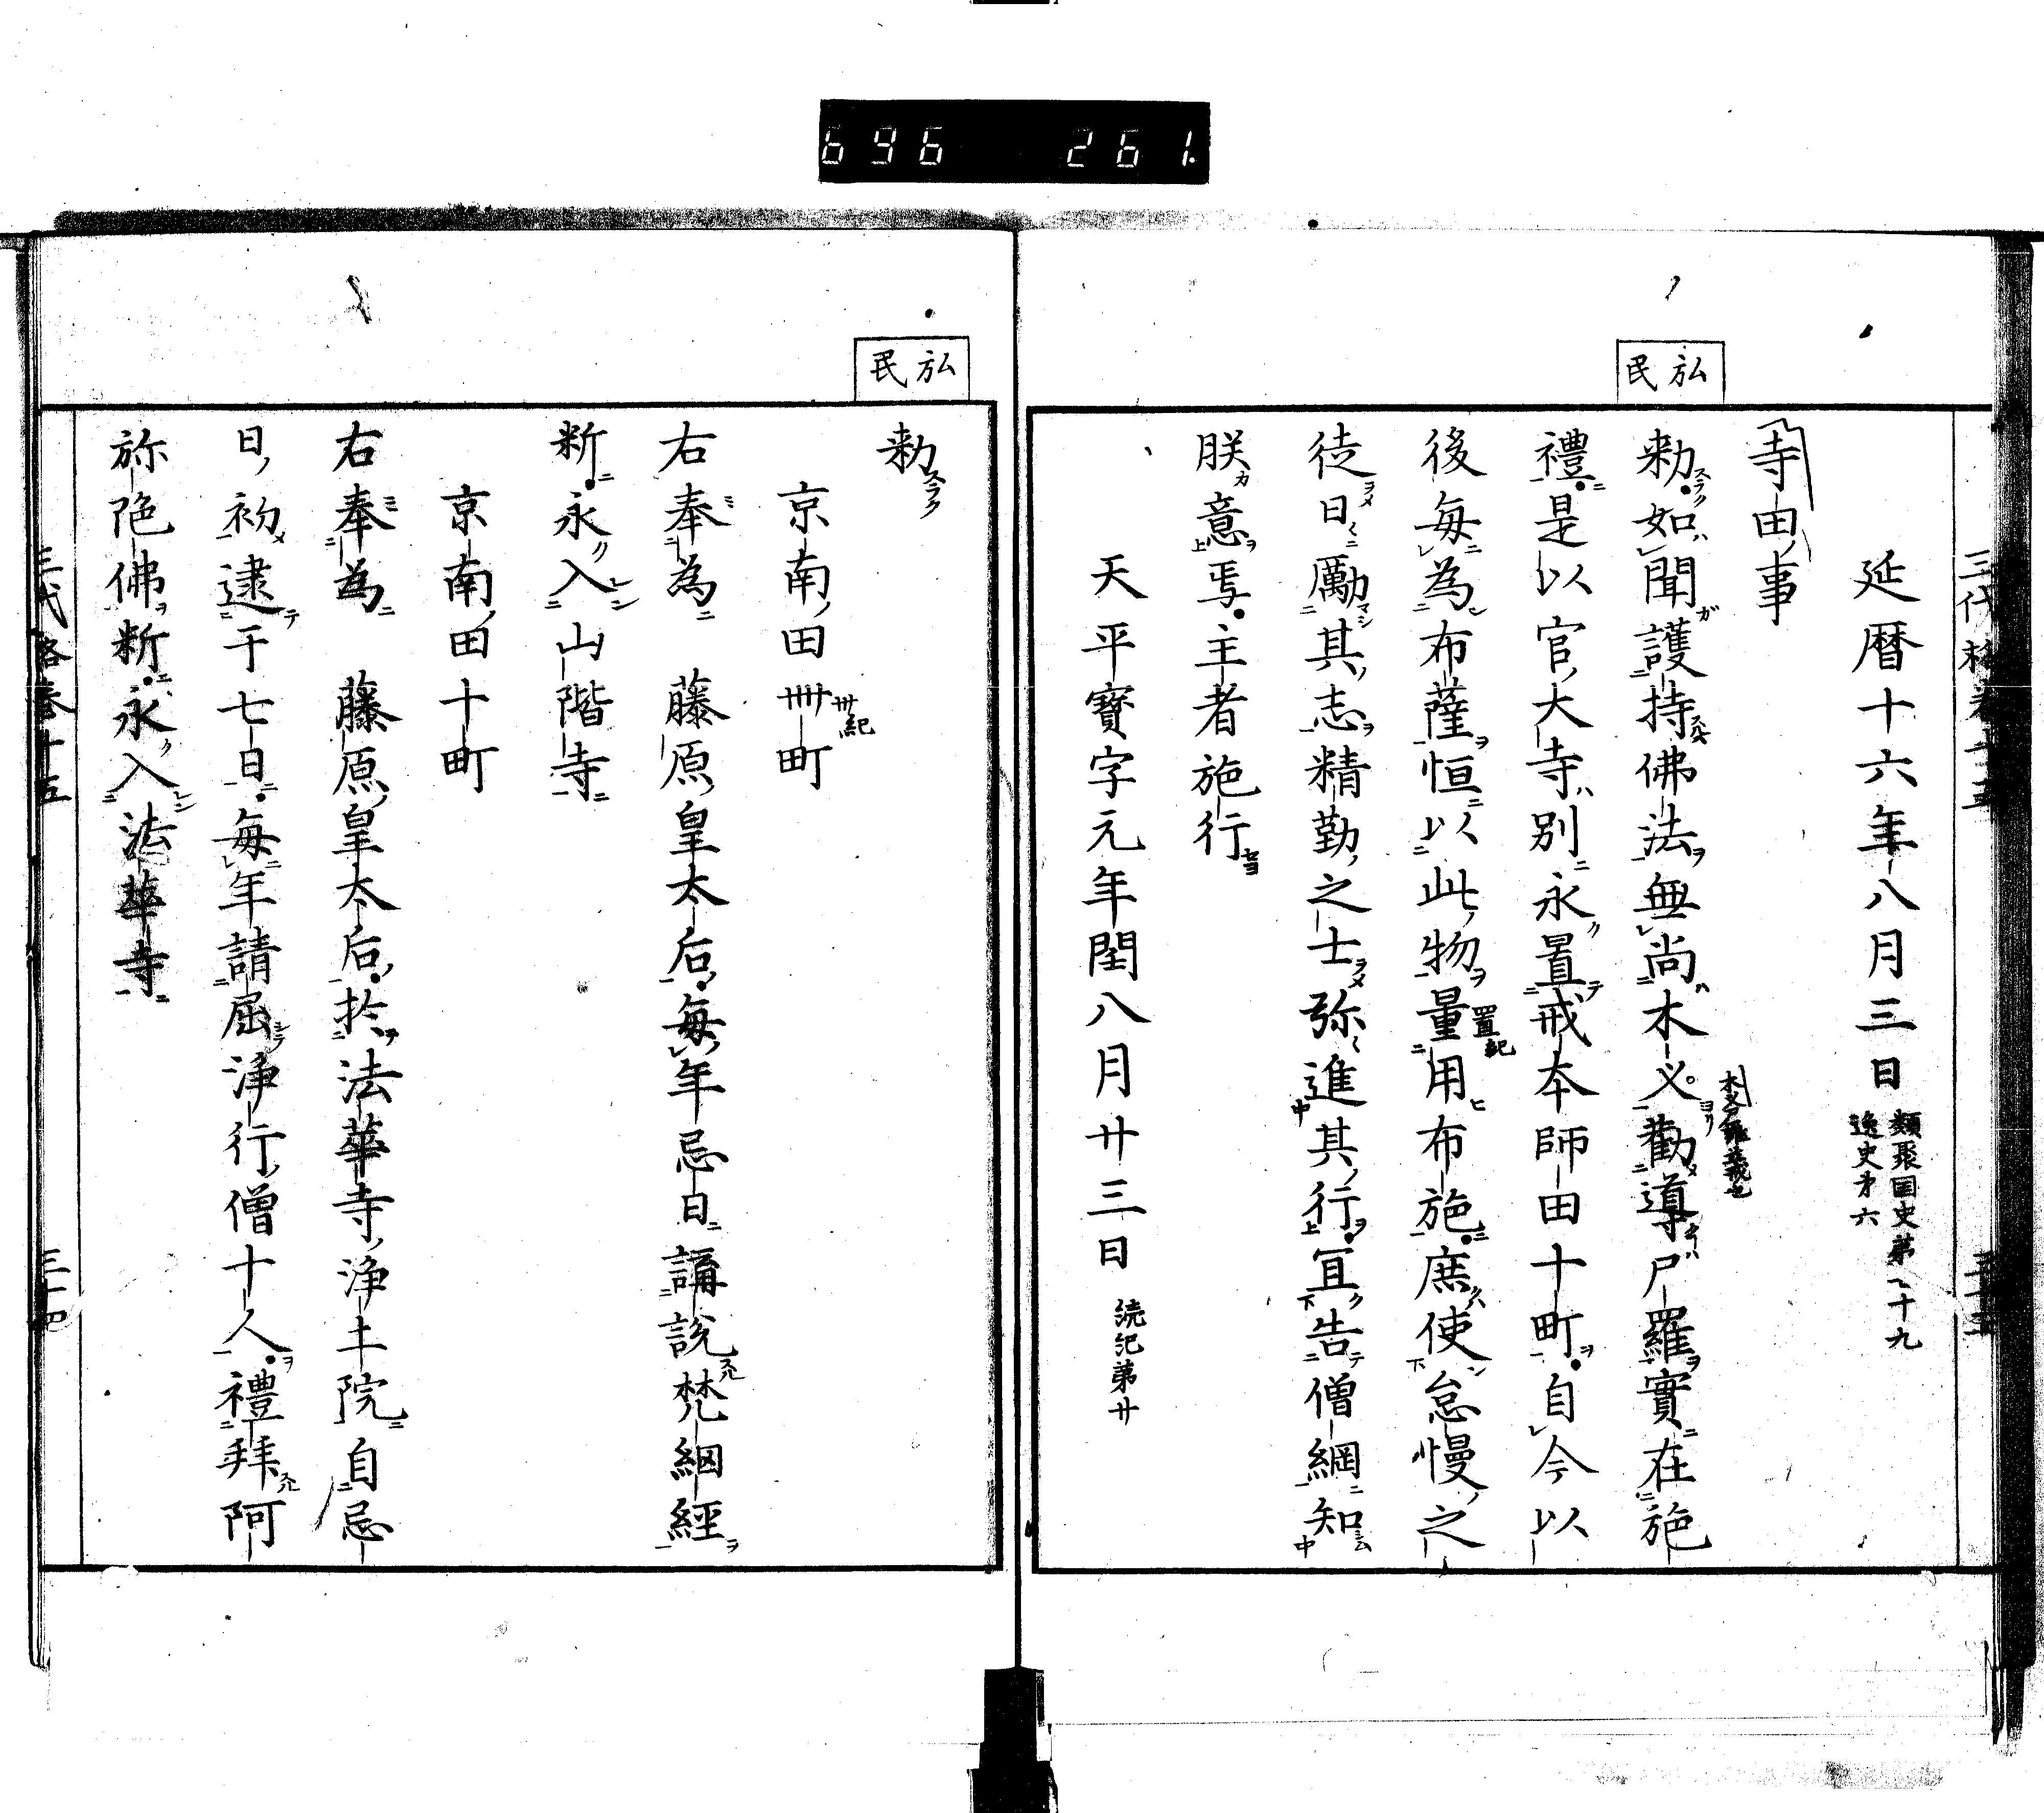 696 261.
弘民
延暦十六年八月三日 類聚国史第八十九 逸史第六
寺田事
勅如聞護持佛法無尚木叉勸導尸羅實在施
禮是以官大寺別永置戒本師田十町自今以
後毎為布薩恒以此物量用布施庶使怠慢之
置紀
徒日厲其志精勤之士弥進其行冝告僧綱知
朕意焉主者施行
天平寳字元年閏八月廿三日 続紀第廿
弘民
勅
京南田卌町
卅紀
右奉為 藤原皇太后毎年忌日講説梵網経
斵永入山階寺
京南田十町
右奉為 藤原皇太后於法華寺浄土院自忌
日初逮于七日毎年請屈浄行僧十人禮拜阿
弥陁佛斵永入法華寺
三代格巻十五